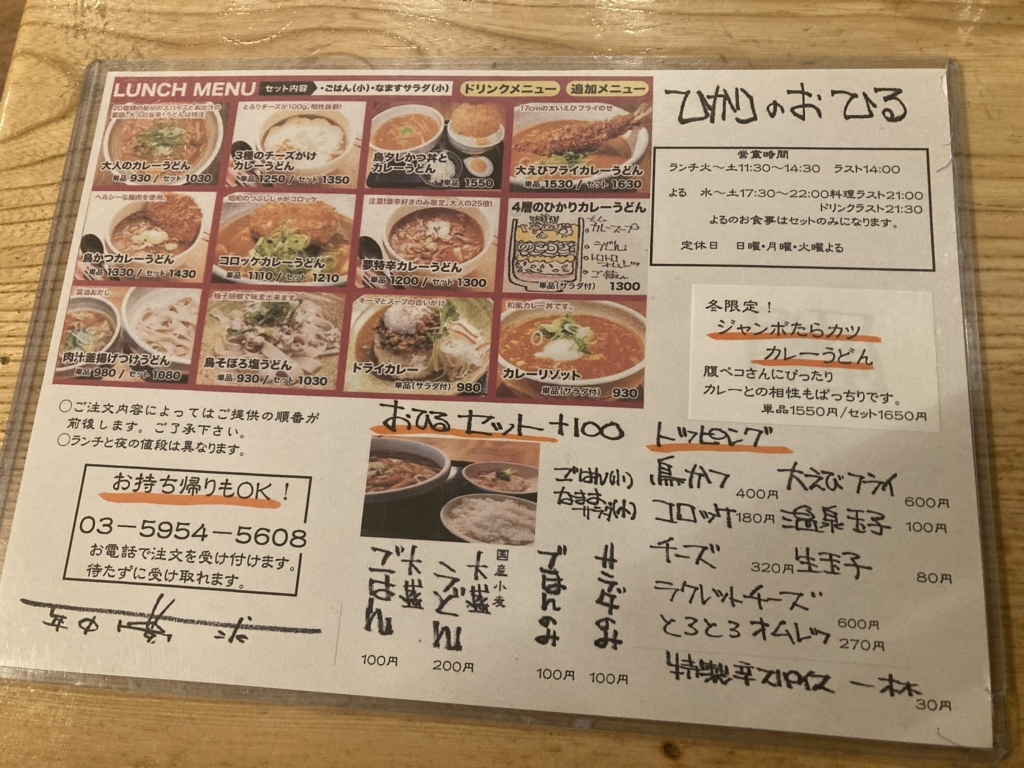 LUNCH MENU セット内容 ・ごはん(小)・なますサラダ(小) ドリンクメニュー 追加メニュー
大人のカレーうどん
単品 930 / セット 1030
とろりチーズが100g、相性抜群!
3種のチーズがけ
カレーうどん
単品 1250 / セット 1350
鳥タレかつ丼と
カレーうどん
単品 1550
17cmの太いえびフライのせ
大えびフライカレーうどん
単品 1530 / セット 1630
ヘルシーな胸肉を使用。
鳥かつカレーうどん
単品 1330 / セット 1430
昭和のつぶしじゃがコロッケ
コロッケカレーうどん
単品 1110 / セット 1210
注意!激辛好きのみ限定。大人の25倍!
夢特辛カレーうどん
単品 1200 / セット 1300
4層のひかりカレーうどん
カレースープ
うどん
トロトロオムレツ
ごはん
単品(サラダ付) 1300
醤油おだし
肉汁釜揚げつけうどん
単品 980 / セット 1080
柚子胡椒で味変出来ます。
鳥そぼろ塩うどん
単品 930 / セット 1030
キーマとスープの合いがけ
ドライカレー
単品(サラダ付) 980
和風カレー丼です。
カレーリゾット
単品(サラダ付) 930
ひかりのおひる
営業時間
ランチ火〜土11:30〜14:30 ラスト14:00
よる 水〜土17:30〜22:00料理ラスト21:00
ドリンクラスト21:30
よるのお食事はセットのみになります。
定休日 日曜・月曜・火曜よる
冬限定!
ジャンボたらカツ
カレーうどん
腹ペコさんにぴったり
カレーとの相性もばっちりです。
単品1550円/セット1650円
○ご注文内容によってはご提供の順番が
前後します。ご了承下さい。
○ランチと夜の値段は異なります。
お持ち帰りもOK!
03-5954-5608
お電話で注文を受け付けます。
待たずに受け取れます。
おひるセット+100
ごはん(小)
なます
サラダ(小)
ごはん大盛り
100円
国産小麦
うどん大盛り
200円
ごはんのみ
100円
サラダのみ
100円
トッピング
鳥かつ 400円 大えびフライ 600円
コロッケ 180円 温泉玉子 100円
チーズ 320円 生玉子 80円
ラクレットチーズ 600円
とろとろオムレツ 270円
特製辛スパイス 一杯 30円